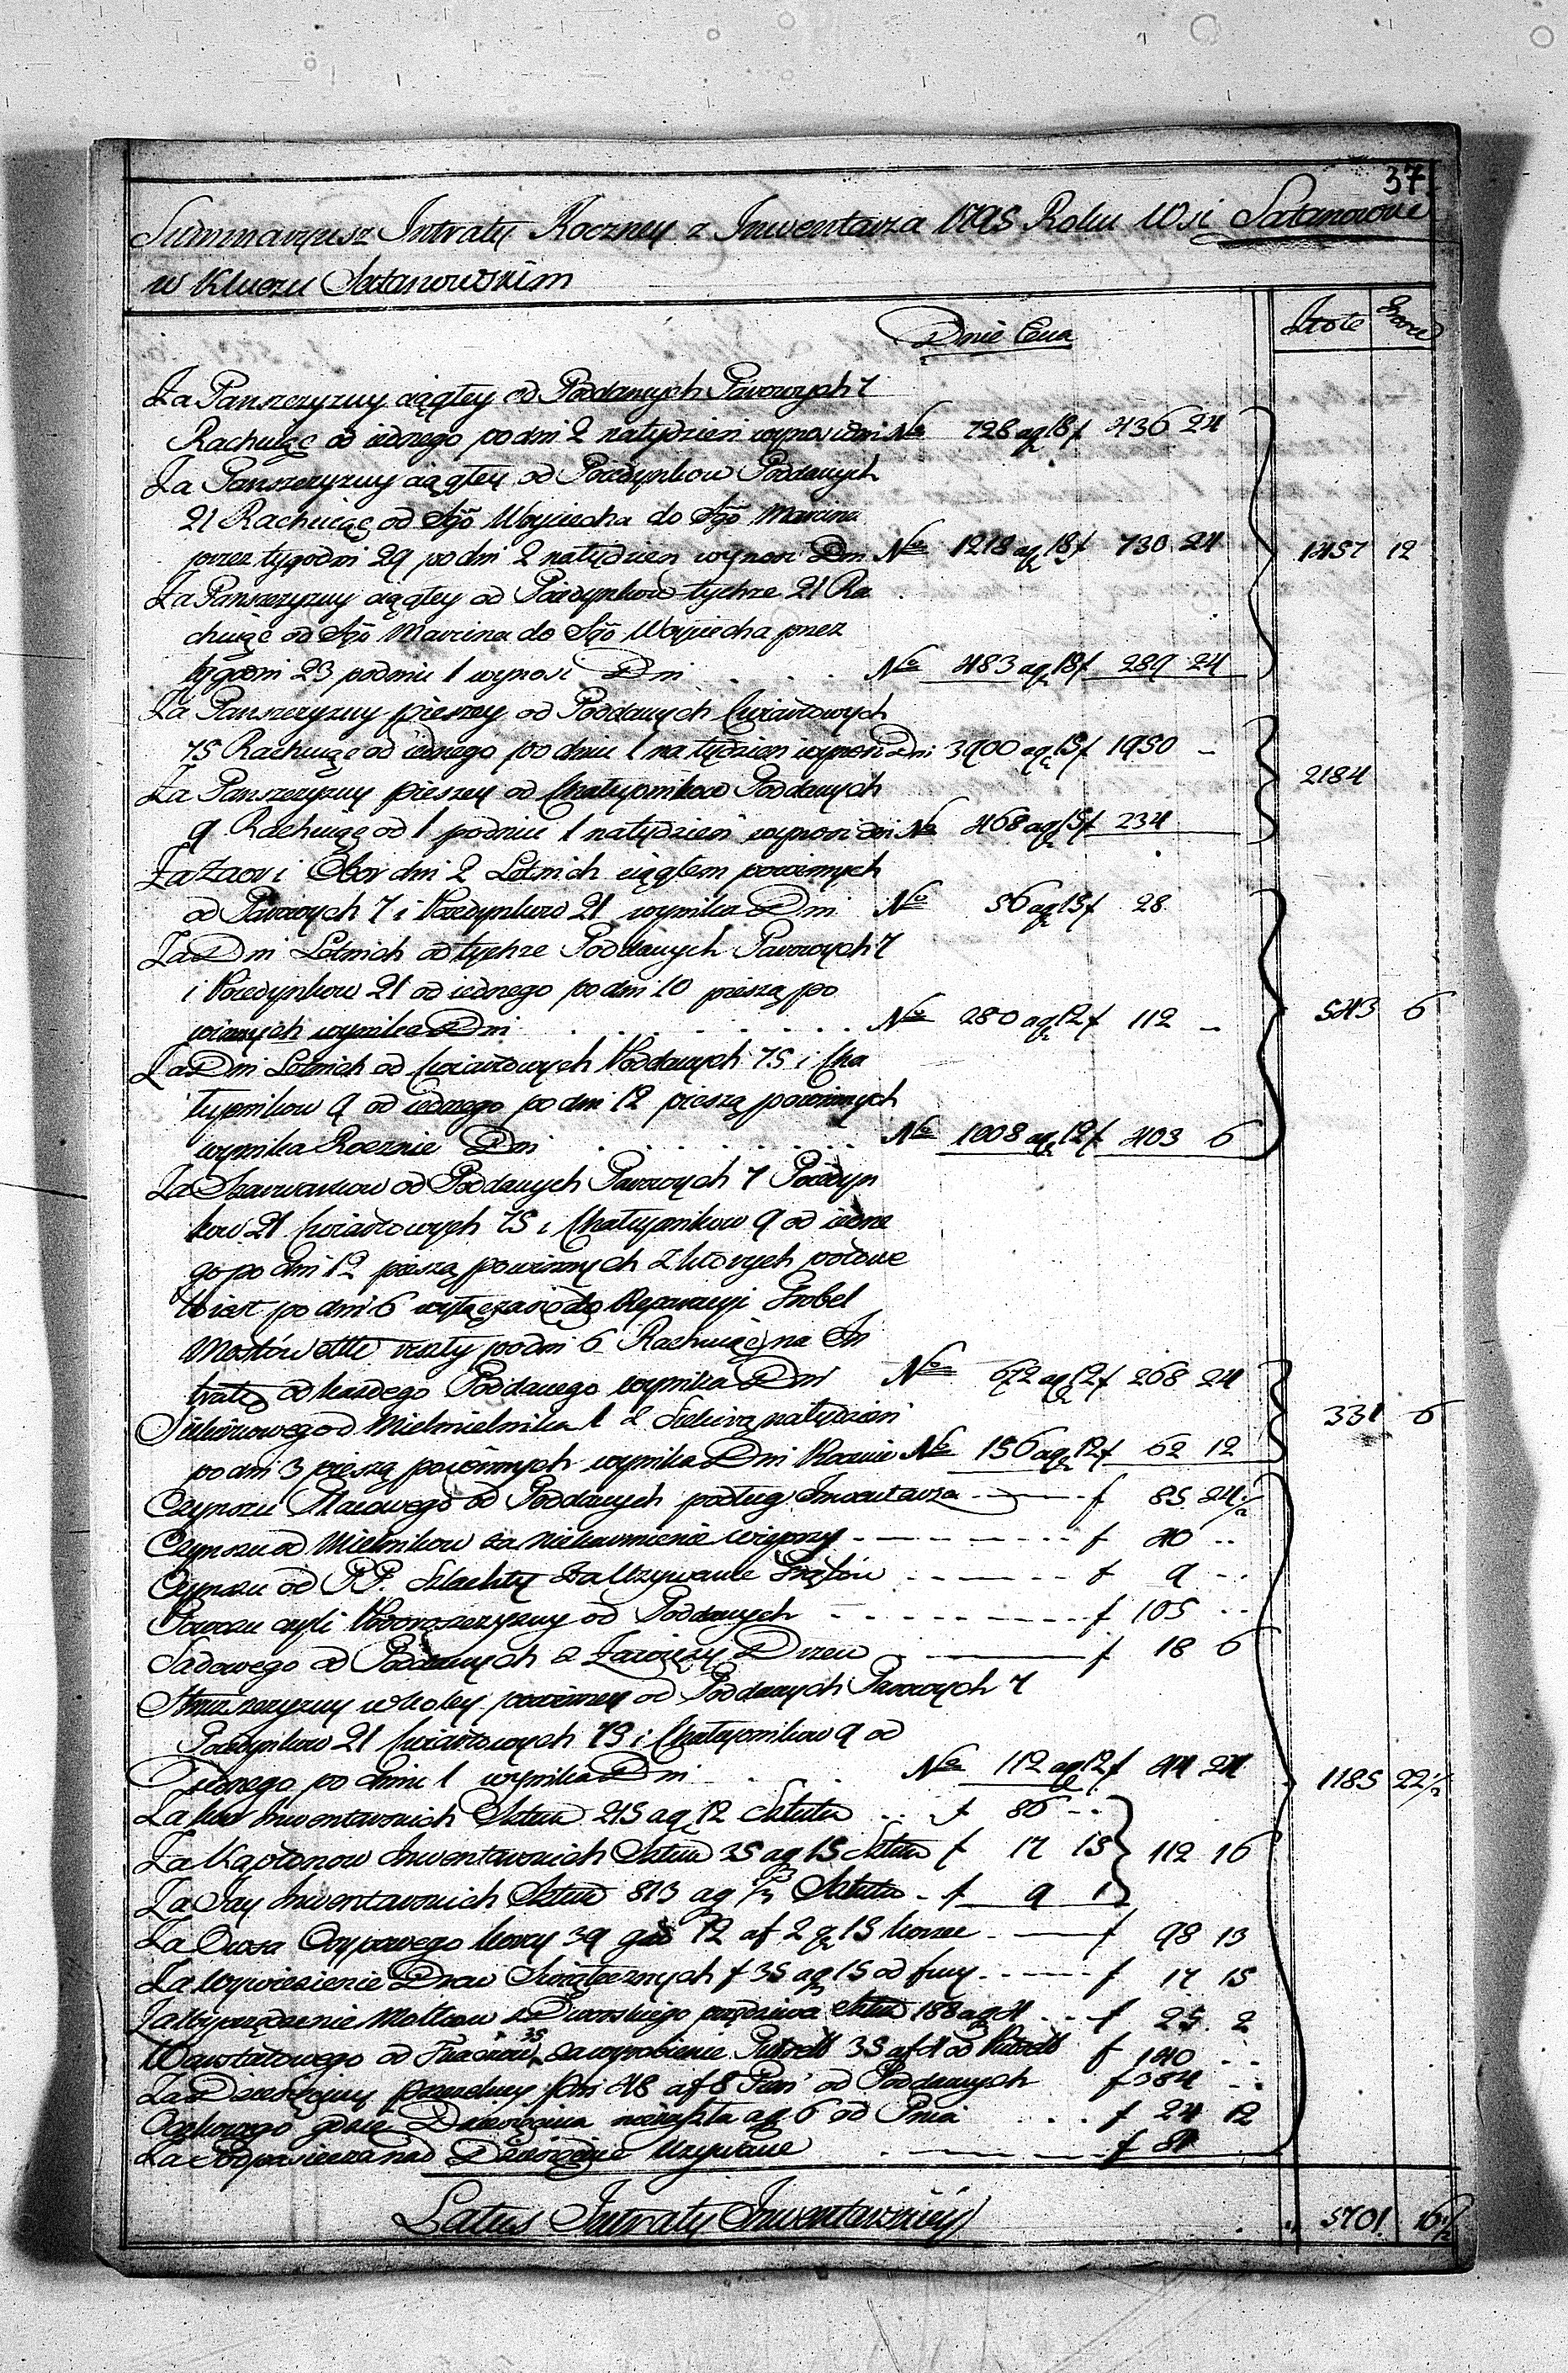 37.
Summaryusz Intraty Roczney z Inwentarza 1795 Roku Wsi Satanowki
w Kluczu Satanowskim
Dnie Cena
Złote Grosze
Za Panszczyzny ciągłey od Poddanych Parowych 7
Rachuiąc od iednego po dni 2 na tydzień wynosi dni No 728 a gr 18 f 436 24
Za Panszczyzny ciągłey od Poiedynkow Poddanych
21 Rachuiąc od Sgo Woyciecha do Sgo Marcina
przez tygodni 29 po dni 2 na tydzien wynosi Dni No 1218 a gr 18 f 730 24 1457 12
Za Panszczyzny ciągłey od Poiedynkow tychze 21 Ra
chuiąc od Sgo Marcina do Sgo Woyciecha przez
tygodni 23 po dniu 1 wynosi Dni No 483 a gr 18 f 289 24
Za Panszczyzny pieszey od Poddanych Cwiartowych
75 Rachuiąc od iednego po dniu 1 na tydzien wynosi Dni 3900 a gr 15 f 1950 -
Za Panszczyzny pieszey od Chałupnikow Poddanych 2184
9 Rachuiąc od 1 po dniu 1 na tydzień wynosi dni No 468 a gr 15 f 234
Za Zaor i Obor dni 2 Letnich ciągłem powinnych
od Parowych 7 i Poiedynkow 21 wynika Dni No 56 a gr 15 f 28
Za Dni Letnich od tychze Poddanych Parowych 7
i Poiedynkow 21 od iednego po dni 10 pieszą po
winnych wynika Dni No 280 a gr 12 f 112 - 543 6
Za Dni Letnich od Cwiartowych Poddanych 75 i Cha
łupnikow 9 od iednego po dni 12 pieszą powinnych
wynika Rocznie Dni No 1008 a gr 12 f 403 6
Za Szarwarkow od Poddanych Parowych 7 Poiedyn
kow 21 Cwiartowych 75 i Chałupnikow 9 od iedne
go po dni 12 pieszą powinnych z ktorych połowe
to iest po dni 6 wyłączaiąc do Reparacyi Grobel
Mostów ettc reszty po dni 6 Rachuiąc na In
tratę od każdego Poddanego wynika Dni No 672 a gr 12 f 268 24
Siekierowego od Mielnika 1 z Siekierą na tydzień 331 6
po dni 3 pieszą powinnych wynika Dni Rocznie No 156 a gr 12 f 62 12
Czynszu Maiowego od Poddanych podług Inwentarza f 85 24 1/2
Czynszu od Mielnikow za niekarmienie wieprzy f 40 --
Czynszu od PP. Szlachty za Utrzywanie Gruntów f 9 --
Powozu czyli Podorozczyzny od Poddanych f 105 --
Sadowego od Poddanych z Drzew f 18 6
Struzszczyzny w koley powinney od Poddanych Parowych 7
Poiedynkow 21 Cwiartowych 75 i Chałupnikow 9 od
Jednego po dniu 1 wynika Dni No 112 a gr 12 f 44 24 1185 22 1/2
Za Kur Inwentarskich Sztuk 215 a gr 12 Sztuka f 86 --
Za Kapłonow Inwentarskich Sztuk 35 a gr 15 Sztuka f 17 15 112 16
Za Jay Inwentarskich Sztuk 813 a gr 1/3 Sztuka f 9 1
Za Owsa Osypowego Korcy 39 12 a f 2 gr 15 korzec f 98 13
Za Wywiezienie Drew Swiątecznych f 35 a gr 15 od fury f 17 15
Za Wyprzędzenie Motkow z Dworskiego przędziwa Sztuk 188 a gr 4 f 25 2
Warstatowego od Tkaczow 35 za wyrobienie 35 a f 4 od f 140 --
Za Dziesięciny Pni 48 a f 8 Pień od Poddanych f 384 --
Oczkowego gdzie Dziesięcina a gr 6 od Pnia f 24 12
Za Podpasieczania Dziesięcine Uzywane f 81
Latus Intraty Inwentarskiey 5701. 16 1/2